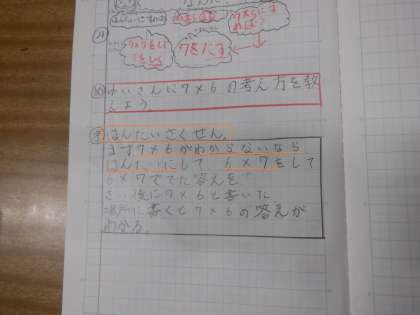 はんたいにすれば
7をたす
めゆいさんに7×6の考え方を教
えよう。
はんたいさくせん。
まず7×6がわからないなら
はんたいにして 6×7をして
6×7ででた答えを
さい後に7×6と書いた
場所に書くと7×6の答えが
わかる。